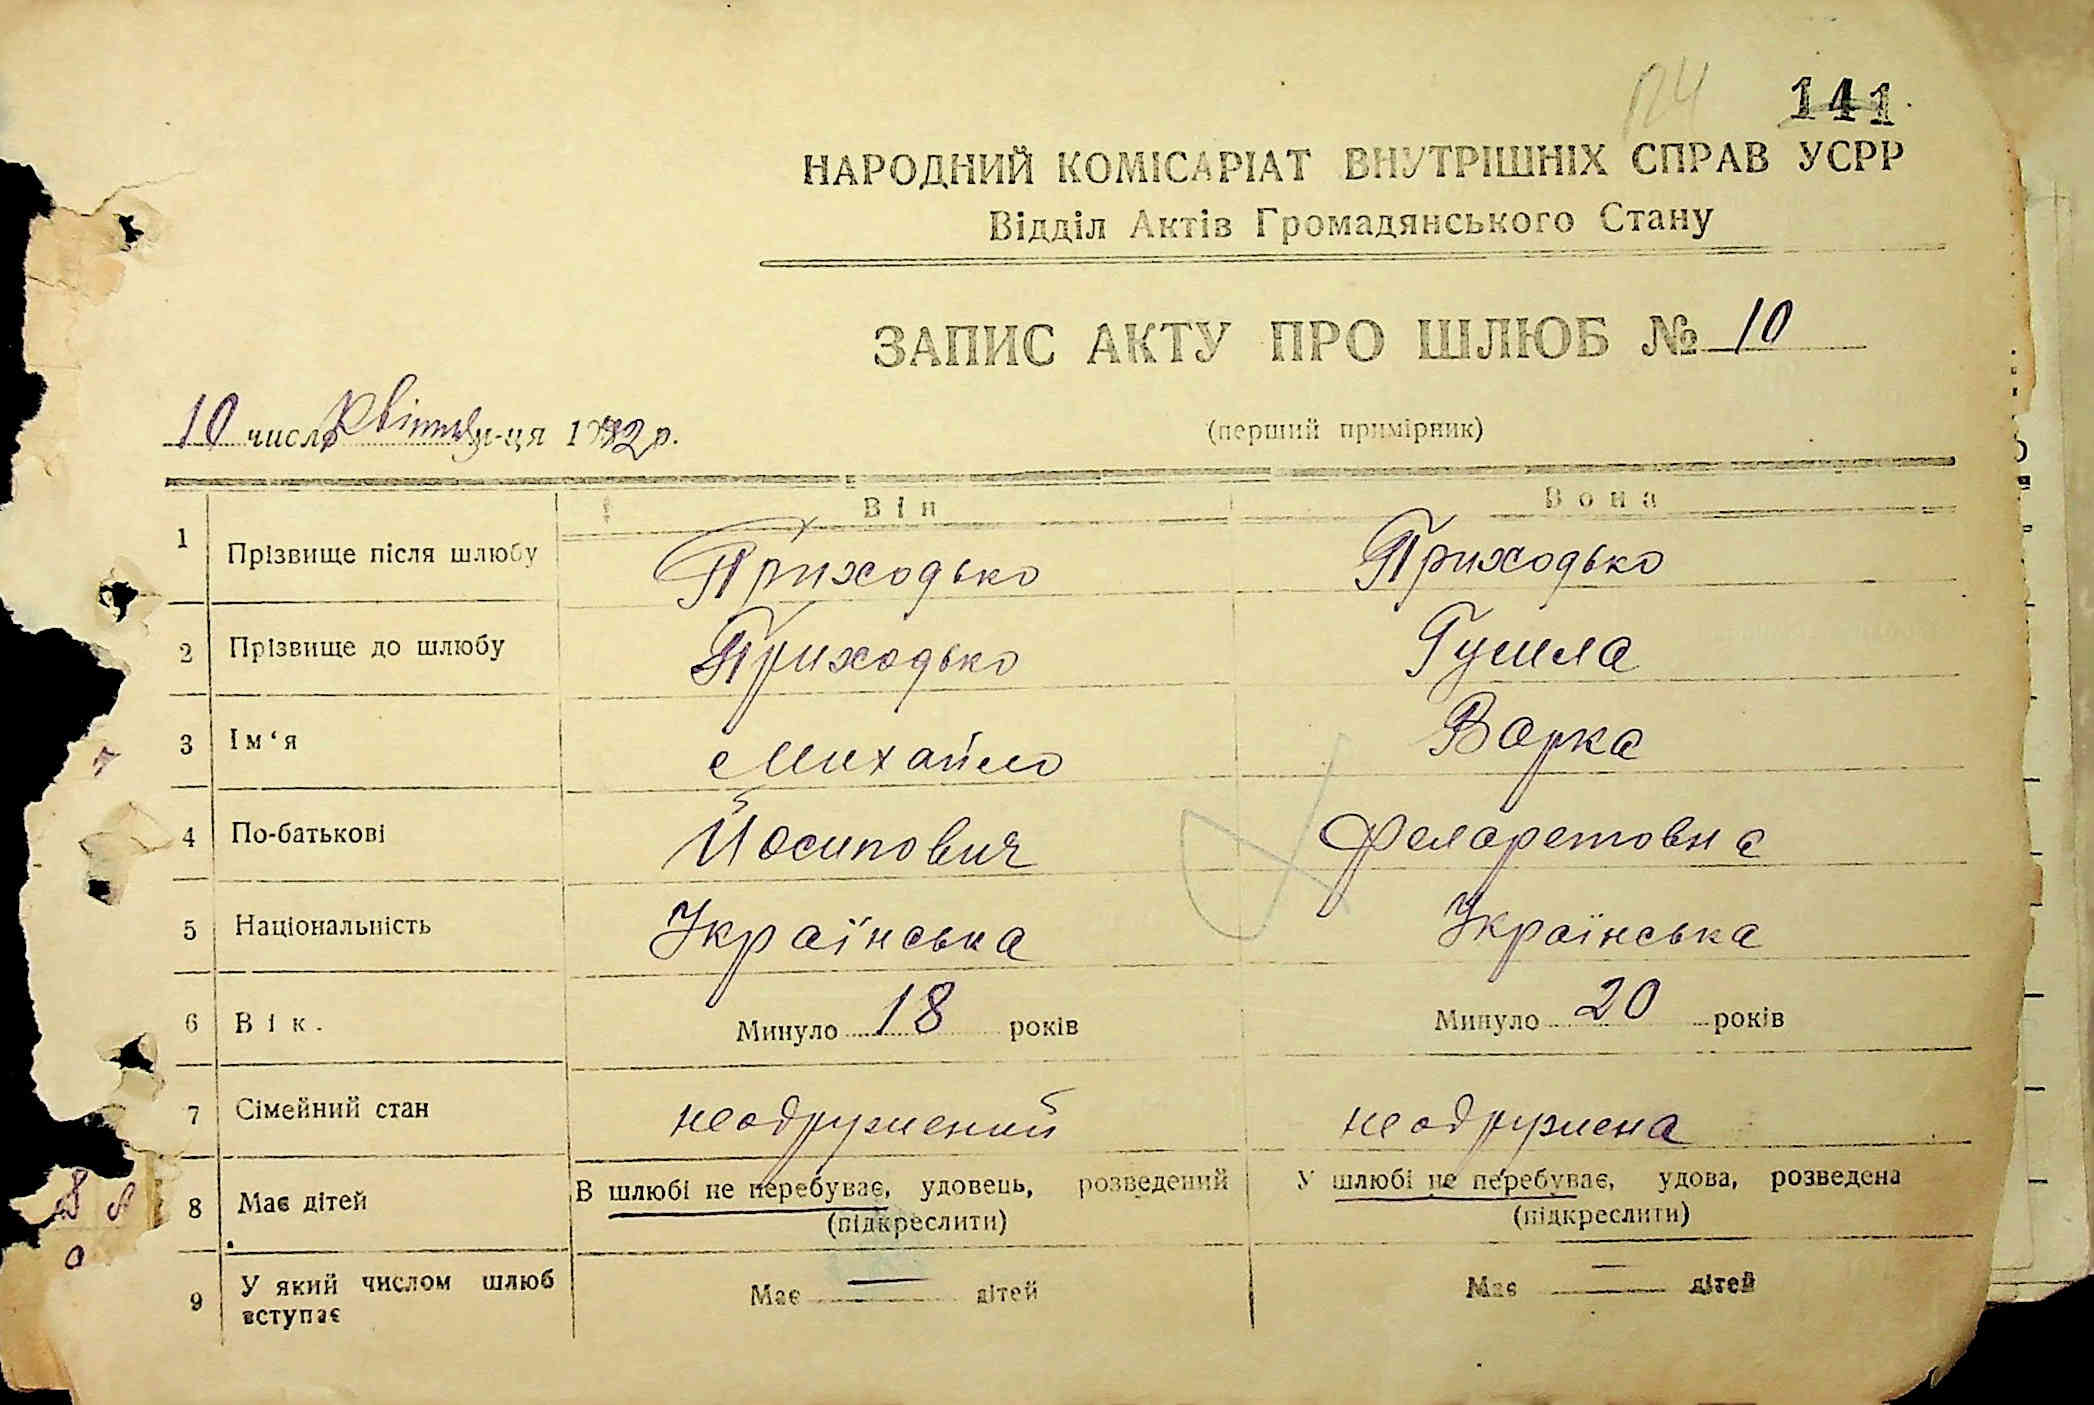 141
НАРОДНИЙ КОМІСАРІАТ ВНУТРІШНІХ СПРАВ УСРР
Відділ Актів Громадянського Стану
ЗАПИС АКТУ ПРО ШЛЮБ № 10
10 число Квітня м-ця 1932 р.
(перший примірник)
Він Вона
1 Прізвище після шлюбу Приходько Приходько
2 Прізвище до шлюбу Приходько
3 Ім‘я Михайло Варка
4 По-батькові Йосипович Феларетовна
5 Національність Українська Українська
6 Вік. Минуло 18 років Минуло 20 років
7 Сімейний стан неодружений неодружена
8 Має дітей В шлюбі не перебуває, удовець, розведений У шлюбі не перебуває, удова, розведена
(підкреслити) (підкреслити)
9 У який числом шлюб вступає Має — дітей Має — дітей